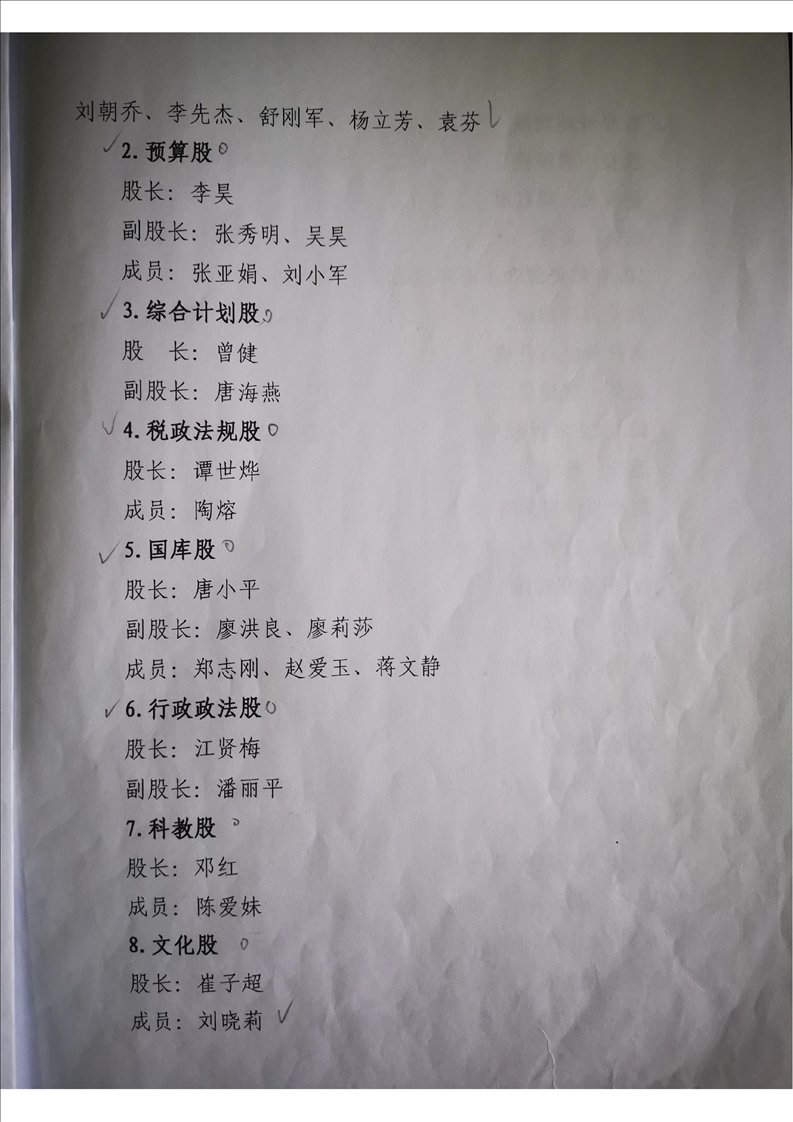 刘朝乔、李先杰、舒刚军、杨立芳、袁芬
2.预算股
股长：李昊
副股长：张秀明、吴昊
成员：张亚娟、刘小军
3.综合计划股
股　长：曾健
副股长：唐海燕
4.税政法规股
股长：谭世烨
成员：陶熔
5.国库股
股长：唐小平
副股长：廖洪良、廖莉莎
成员：郑志刚、赵爱玉、蒋文静
6.行政政法股
股长：江贤梅
副股长：潘丽平
7.科教股
股长：邓红
成员：陈爱妹
8.文化股
股长：崔子超
成员：刘晓莉